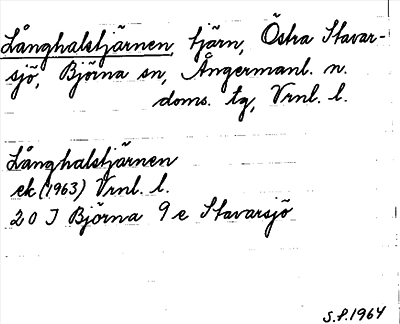 Långhalstjärnen, tjärn, Östra Stavar-
sjö, Björna sn, Ångermanl. n.
doms. tg, Vrnl. l.
Långhalstjärnen
ek (1963) Vrnl. l.
20 J Björna 9 e Stavarsjö
S.P. 1964